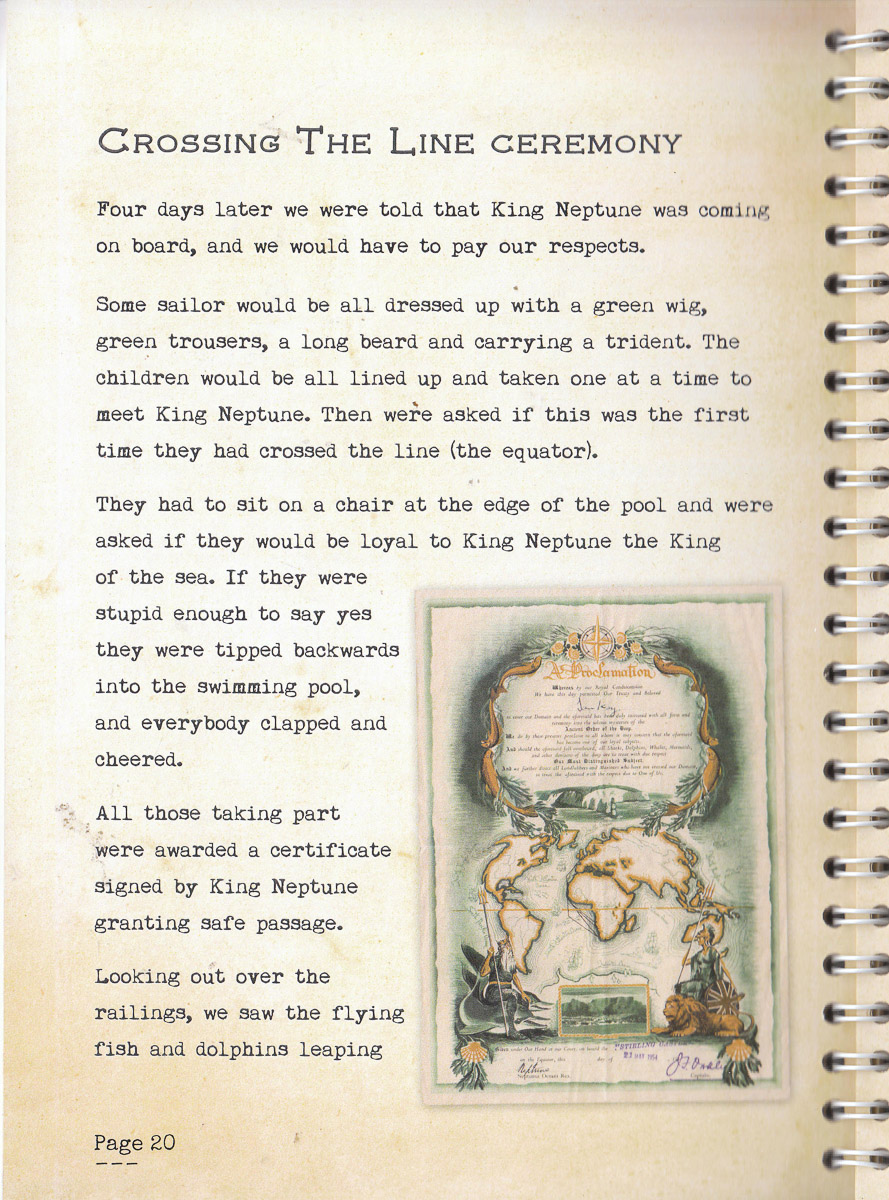 Crossing The Line ceremony
Four days later we were told that King Neptune was coming
on board, and we would have to pay our respects.
Some sailor would be all dressed up with a green wig,
green trousers, a long beard and carrying a trident. The
children would be all lined up and taken one at a time to
meet King Neptune. Then were asked if this was the first
time they had crossed the line (the equator).
They had to sit on a chair at the edge of the pool and were
asked if they would be loyal to King Neptune the King
of the sea. If they were
stupid enough to say yes
they were tipped backwards
into the swimming pool,
and everybody clapped and
cheered.
All those taking part
were awarded a certificate
signed by King Neptune
granting safe passage.
Looking out over the
railings, we saw the flying
fish and dolphins leaping
A Proclamation
Whereas by our Royal Condescension
We have this day permitted Our Trusty and Beloved
to enter our Domain and the aforesaid has been duly initiated with all form and
ceremony into the solemn mysteries of the
Ancient Order of the Deep
We do by these presents proclaim to all whom it may concern that the aforesaid
has become one of our loyal subjects.
And should the aforesaid fall overboard, all Sharks, Dolphins, Whales, Mermaids,
and other denizens of the deep are to treat with due respect
Our Most Distinguished Subject
And we further direct all Landlubbers and Mariners who have not crossed our Domain,
to treat the aforesaid with the respect due to One of Us.
Given under Our Hand at our Court, on board the
"STIRLING CASTLE"
on the Equator, this day of
MAY 1954
Neptune
Neptunus Oceani Rex.
Captain.
Page 20